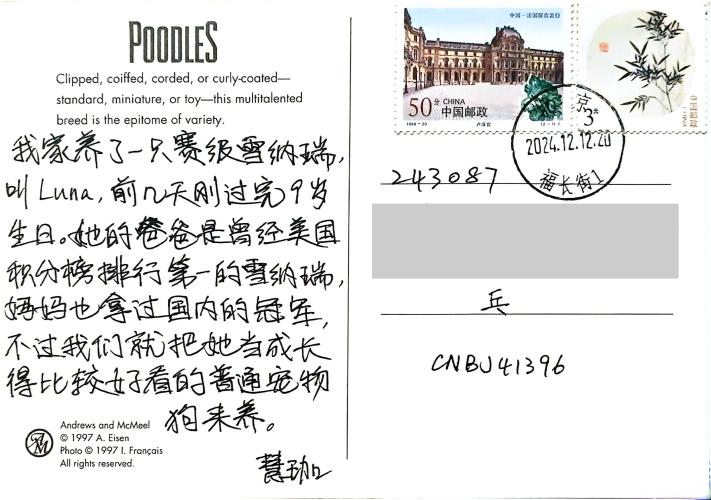 POODLES
Clipped, coiffed, corded, or curly-coated—
standard, miniature, or toy—this multitalented
breed is the epitome of variety.
我家养了一只赛级雪纳瑞,
叫Luna,前几天刚过完9岁
生日。她的爸爸是曾经美国
积分榜排行第一的雪纳瑞,
妈妈也拿过国内的冠军,
不过我们就把她当成长
得比较好看的普通宠物
狗来养。
慧珈
Andrews and McMeel
© 1997 A. Eisen
Photo © 1997 I. Français
All rights reserved.
中国-法国联合发行
50分 CHINA
中国邮政
1998-20
卢浮宫
3元
中国邮政
CHINA
京
2024.12.12.20
福长街1
243087
兵
CNBJ41396